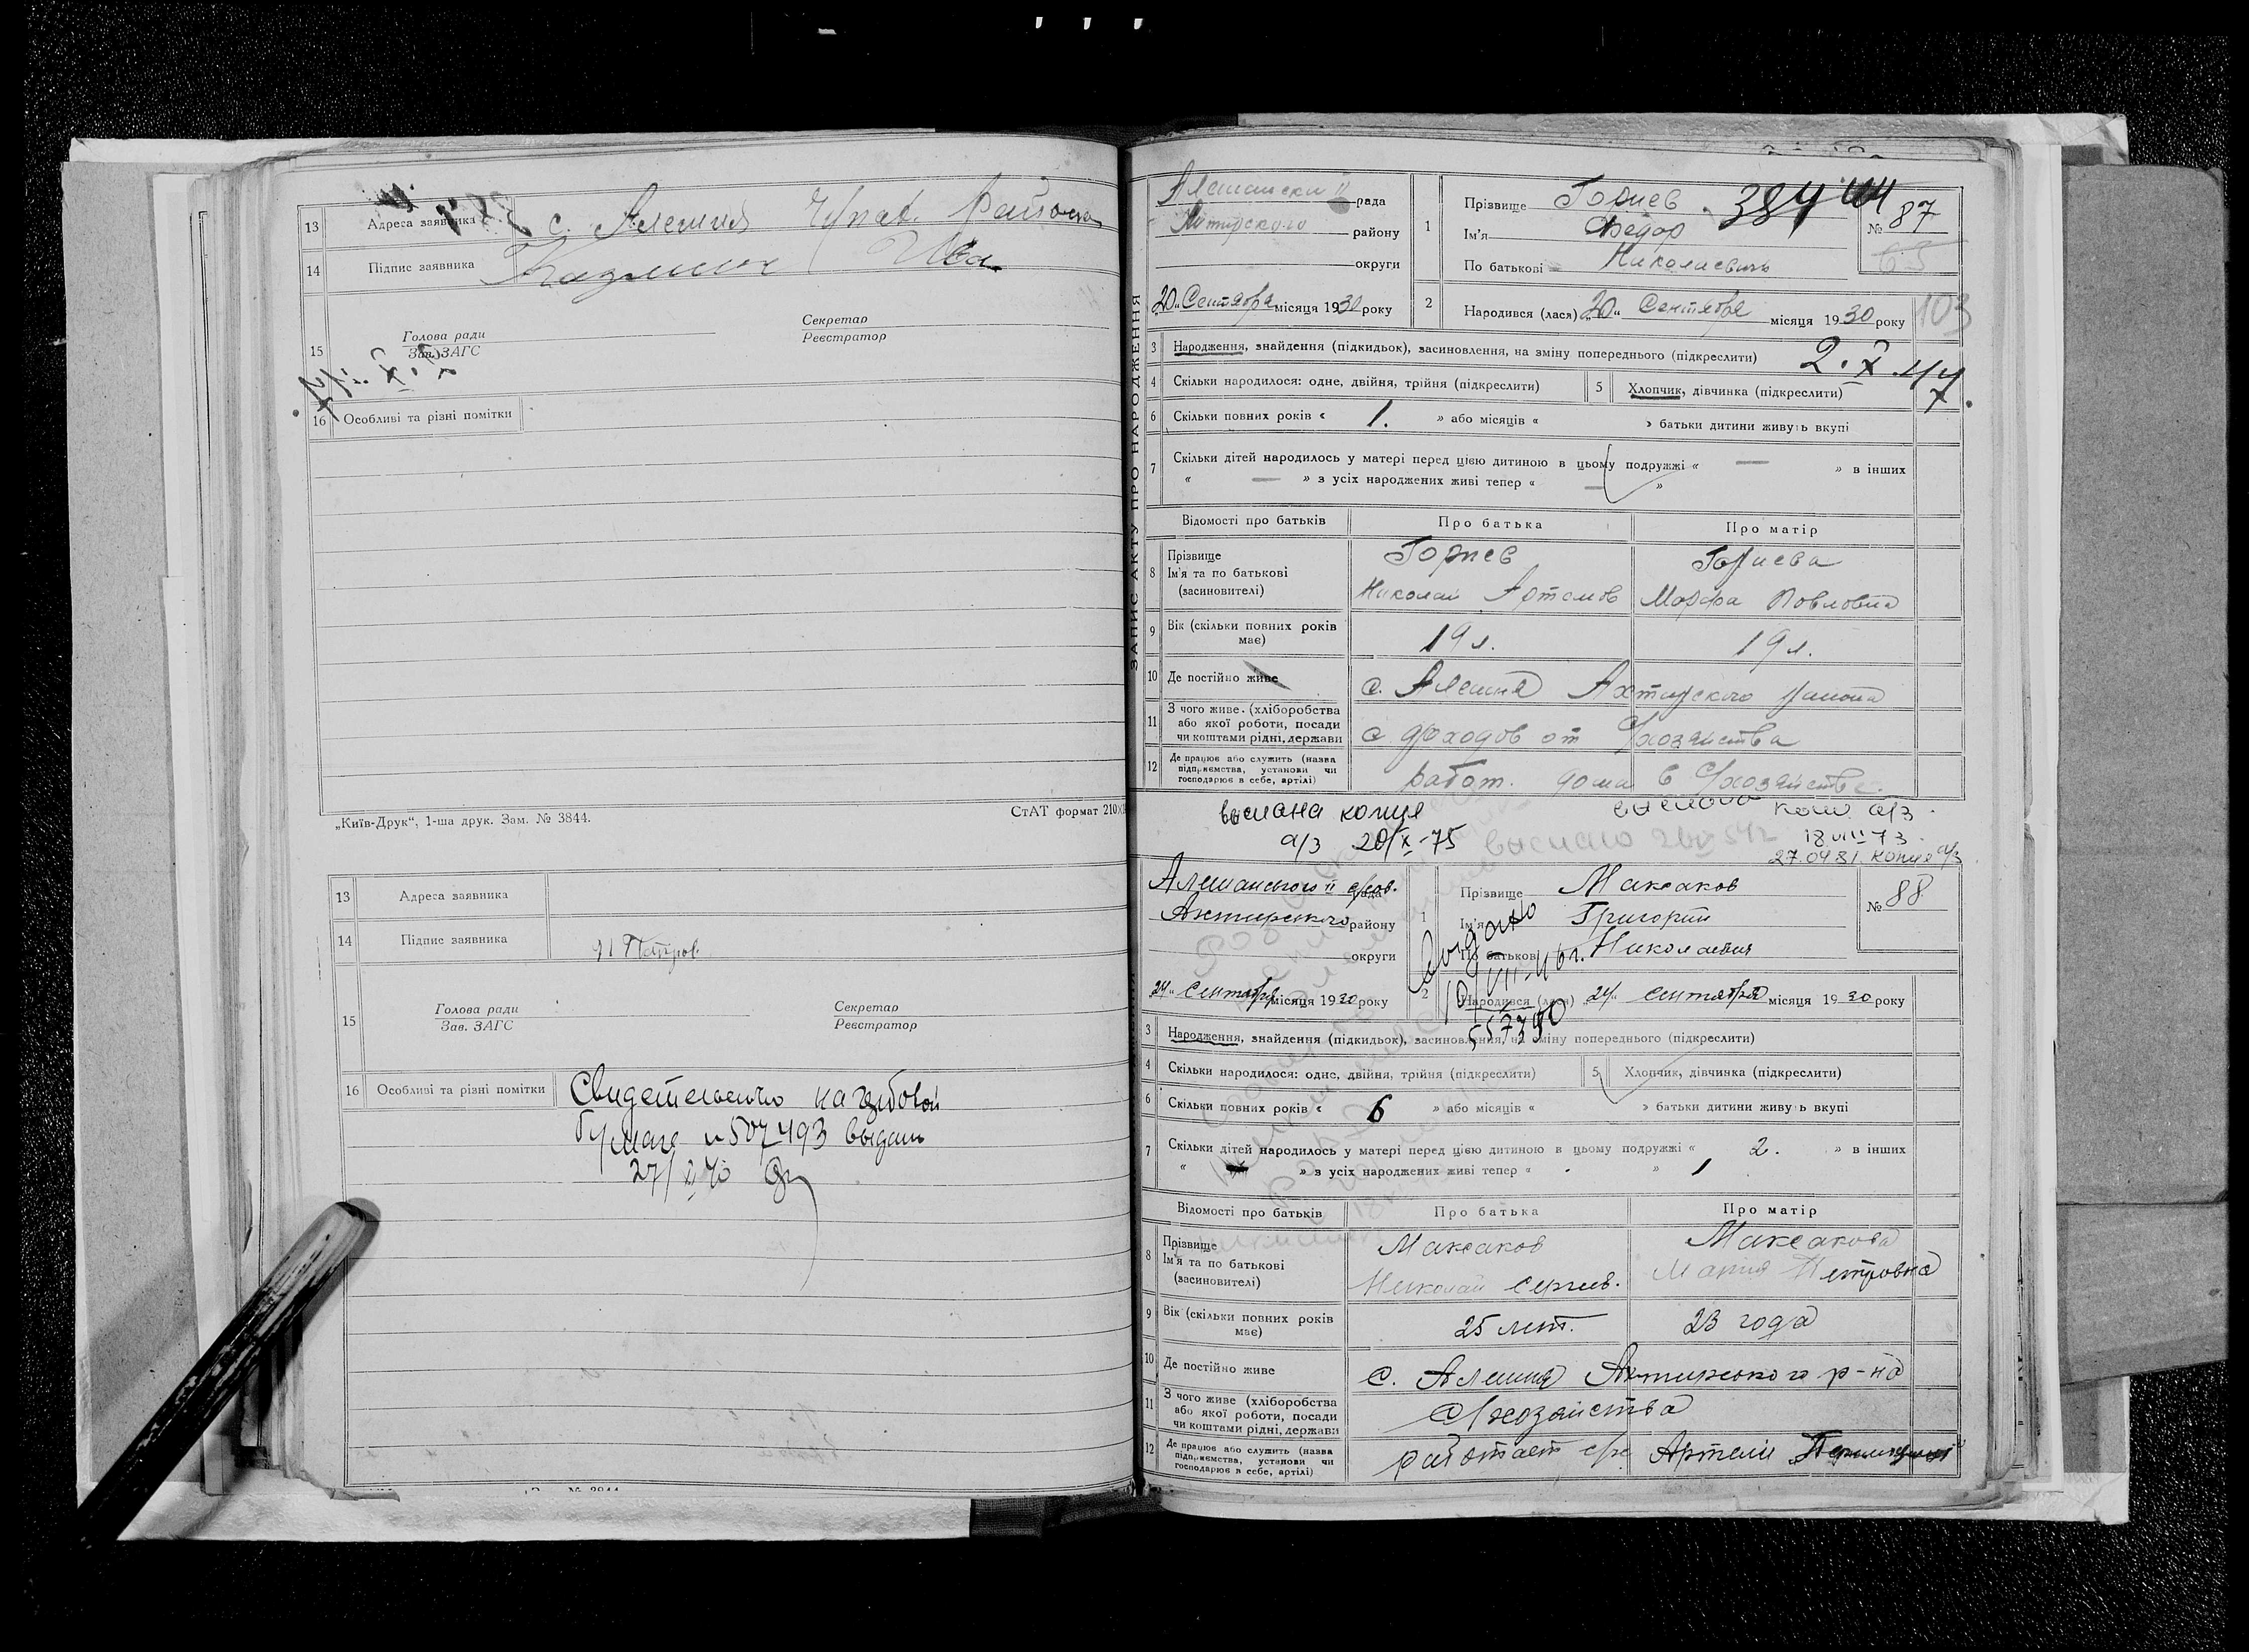 13 Адреса заявника с. Алешня Района
14 Підпис заявника
15 Голова ради Секретар
Зав. ЗАГС Реєстратор
16 Особливі та різні помітки
„Київ-Друк“, 1-ша друк. Зам. № 3844. СтАТ формат 210
13 Адреса заявника
14 Підпис заявника
15 Голова ради Секретар
Зав. ЗАГС Реєстратор
16 Особливі та різні помітки Свидетельство на гербовой
бумаге №507493 выдано
27/
ЗАПИС АКТУ ПРО НАРОДЖЕННЯ
рада
району
округи
20 „ Сентября місяця 1930 року
1 Прізвище
Ім'я Федор
По батькові Николаевич
384
№ 87
2 Народився (лася) „20“ Сентября місяця 1930 року
103
3 Народження, знайдення (підкидьок), засиновлення, на зміну попереднього (підкреслити)
2.X.44
4 Скільки народилося: одне, двійня, трійня (підкреслити) 5 Хлопчик, дівчинка (підкреслити)
6 Скільки повних років « 1. » або місяців « » батьки дитини живуть вкупі
7 Скільки дітей народилось у матері перед цією дитиною в цьому подружжі « — » в інших
« — » з усіх народжених живі тепер « — »
Відомості про батьків Про батька Про матір
8 Прізвище
Ім'я та по батькові Николай Артемов Марфа Павловна
(засиновителі)
9 Вік (скільки повних років має) 19 л. 19 л.
10 Де постійно живе с. Алешня Ахтырского района
11 З чого живе. (хліборобства або якої роботи, посади чи коштами рідні, держави с доходов от с/хозяйства
12 Де працює або служить (назва підприємства, установи чи господарює в себе, артілі) работ. дома в с/хозяйстве.
выслана копия
а/з 20/X-75
коп. а/з
18 VIII 73
27.04.81. копия а/з
району
округи
24 „ Сентября місяця 1930 року
1 Прізвище Максаков
Ім'я Григорий
По батькові Николаевич
№ 88
2 Народився (лася) „24“ Сентября місяця 1930 року
3 Народження, знайдення (підкидьок), засиновлення, на зміну попереднього (підкреслити)
4 Скільки народилося: одне, двійня, трійня (підкреслити) 5 Хлопчик, дівчинка (підкреслити)
6 Скільки повних років « 6 » або місяців « » батьки дитини живуть вкупі
7 Скільки дітей народилось у матері перед цією дитиною в цьому подружжі « 2. » в інших
« » з усіх народжених живі тепер « » 1
Відомості про батьків Про батька Про матір
8 Прізвище Максаков Максакова
Ім'я та по батькові Николай Сергеев. Мария Петровна
(засиновителі)
9 Вік (скільки повних років має) 25 лет. 23 года
10 Де постійно живе с. Алешня Ахтырского р-на
11 З чого живе (хліборобства або якої роботи, посади чи коштами рідні, держави с/хозяйства
12 Де працює або служить (назва підприємства, установи чи господарює в себе, артілі) работает Артели